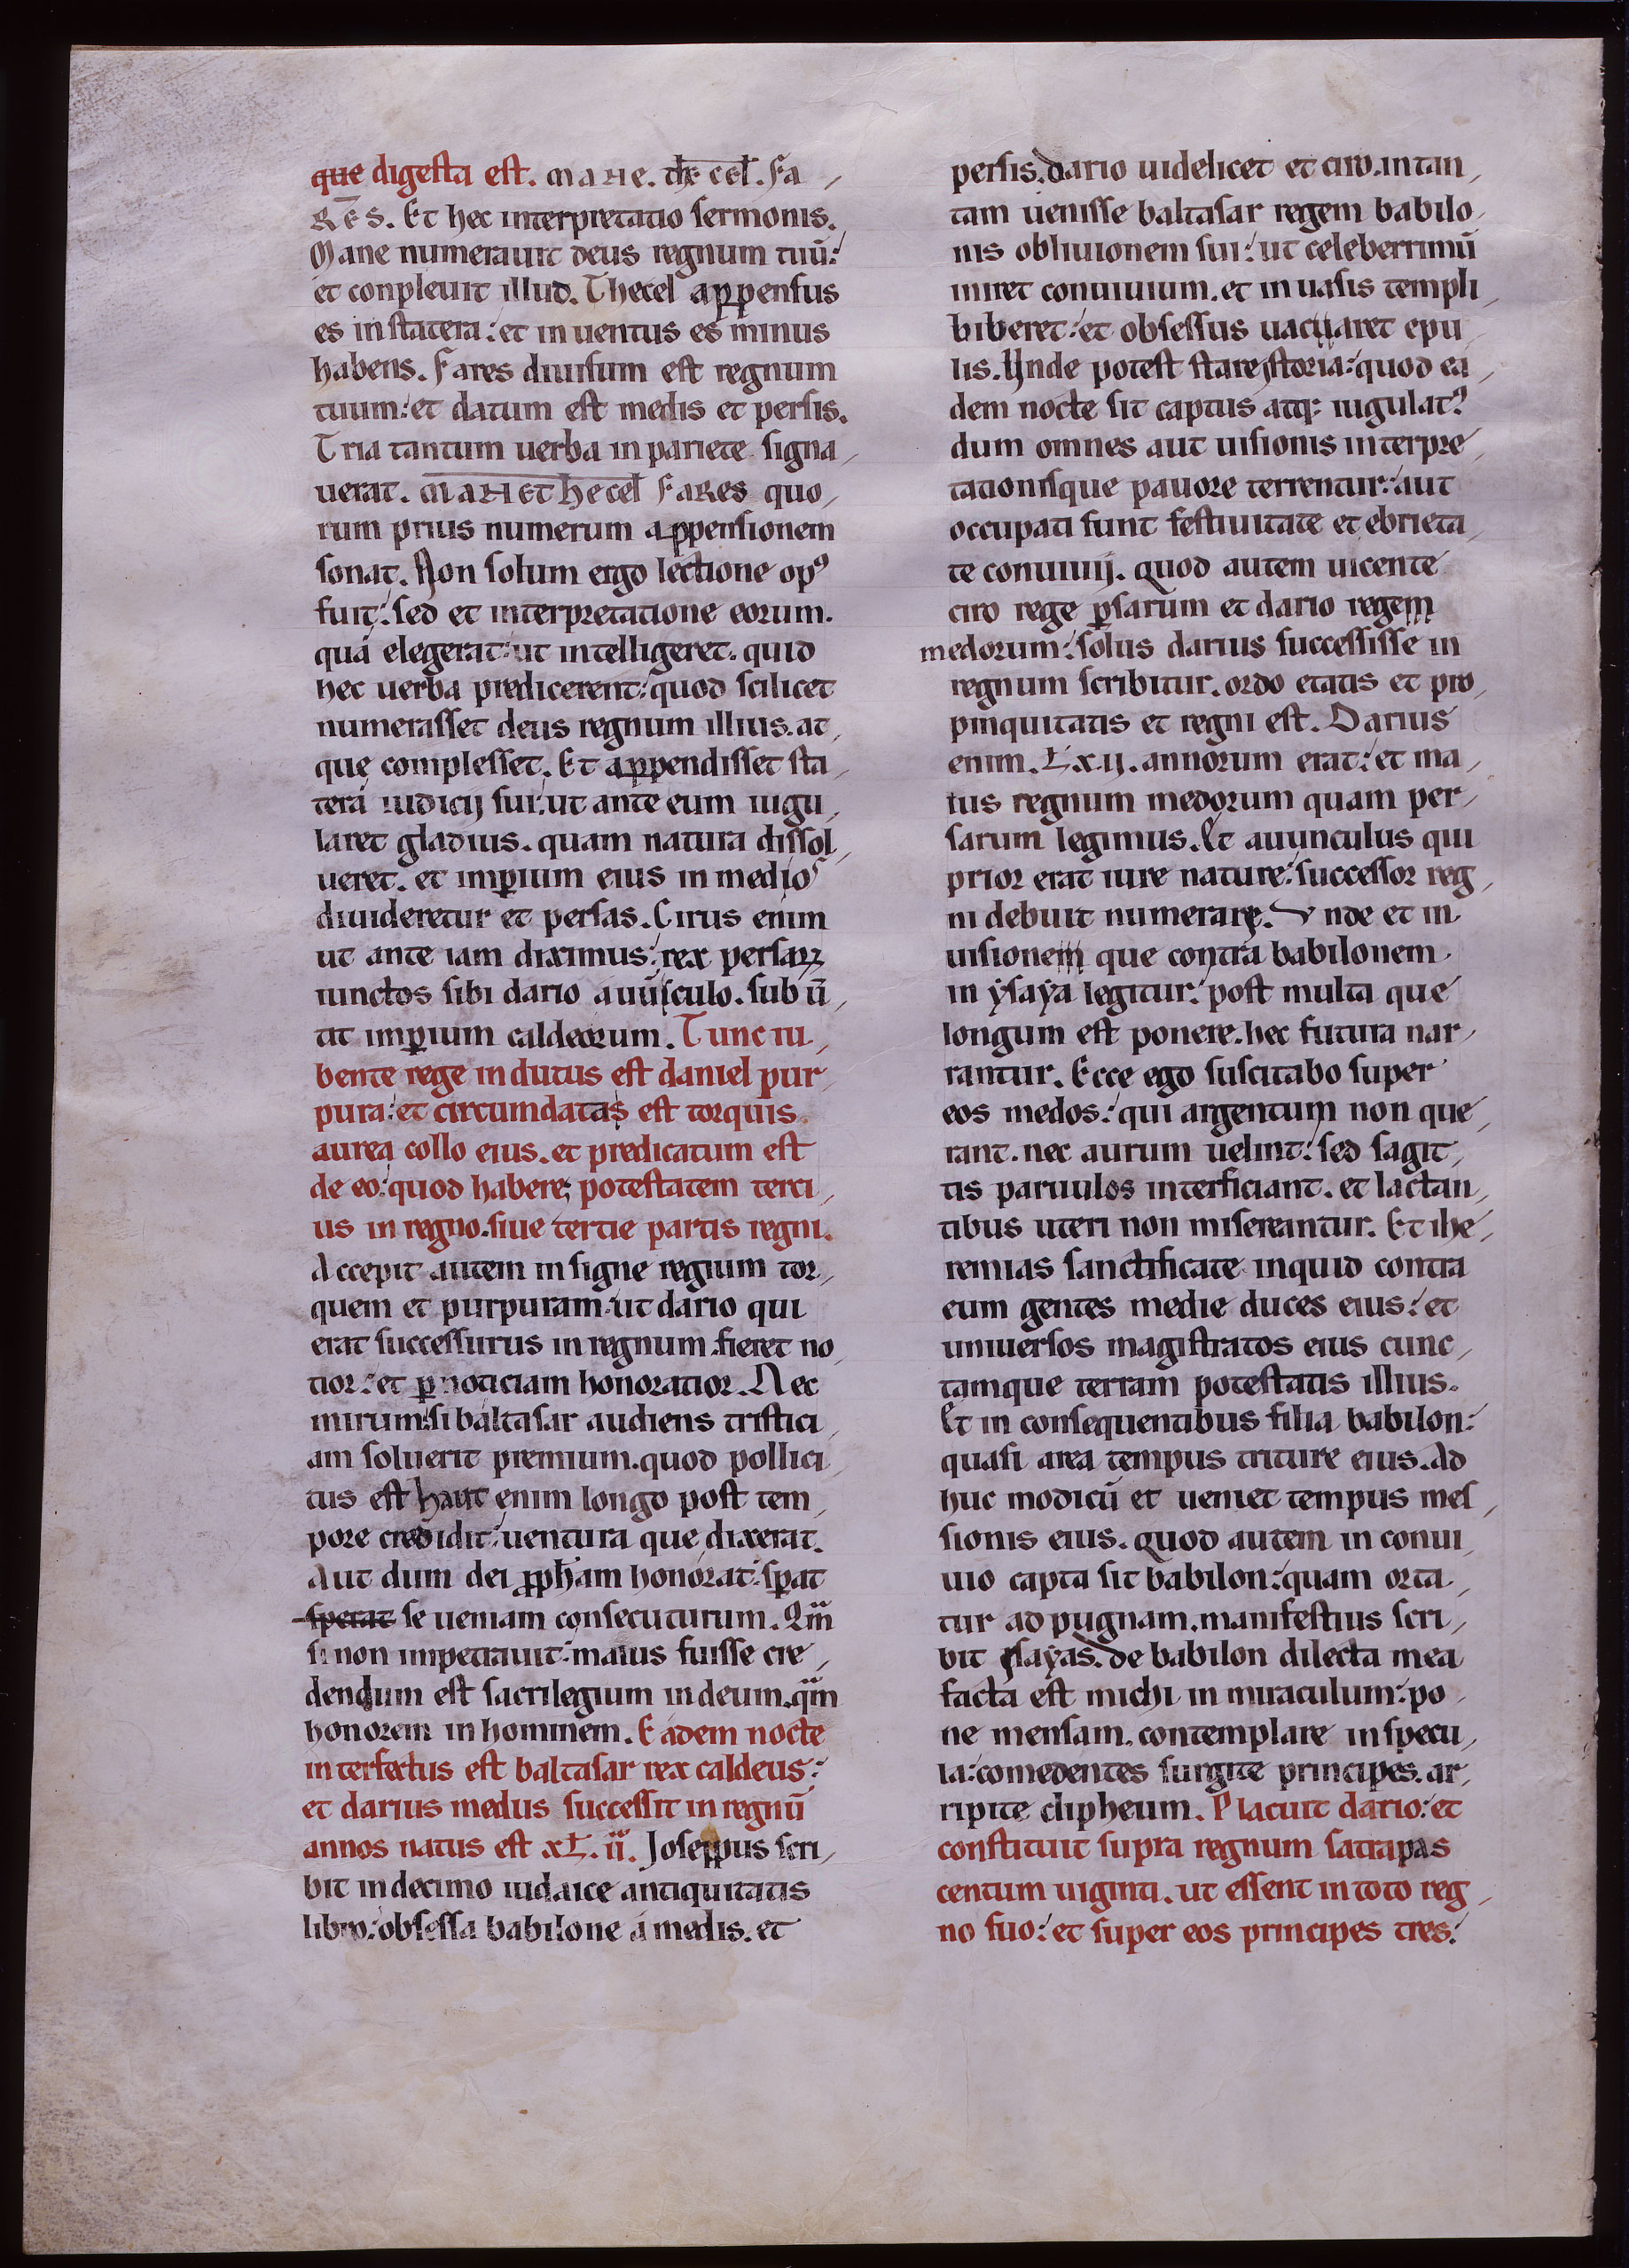 que digesta est. MANE. thecel. fa
RES. Et hec interpretatio sermonis.
Mane numerauit deus regnum tuū:
et conpleuit illud. Thecel appensus
es in statera: et inuentus es minus
habens. Fares diuisum est regnum
tuum: et datum est medis et persis.
Tria tantum uerba in pariete signa
uerat. MANE Thecel FARes quo
rum prius numerum appensionem
sonat. Non solum ergo lectione opꝰ
fuit: sed et interpretatione eorum.
qua elegerat ut intelligeret. quid
hec uerba predicerent: quod scilicet
numerasset deus regnum illius. at
que complesset. Et appendisset sta
tera iudicij sui: ut ante eum iugu
laret gladius. quam natura dissol
ueret. et imꝑium eius in medios
diuideretur et persas. Cirus enim
ut ante iam diximus: rex persaꝝ
iunctos sibi dario auūculo. sub ū
tit imꝑium caldeorum. Tunc iu
bente rege indutus est daniel pur
pura: et circumdatas est torquis
aurea collo eius. et predicatum est
de eo: quod habere; potestatem terci
us in regno. siue tertie partis regni.
Accepit autem insigne regium tor
quem et purpuram. ut dario qui
erat successurus in regnum. fieret no
tior: et ꝑ noticiam honoratior. Nec
mirum: si baltasar audiens tristici
am soluerit premium. quod pollici
tus est haut enim longo post tem
pore credidit: uentura que dixerat.
Aut dum dei ꝓph̄am honorat: sꝑat
sperat se ueniam consecuturum. Qm̄
si non impetrauit: maius fuisse cre
dendum est sacrilegium in deum. qm̄
honorem in hominem. Eadem nocte
interfectus est baltasar rex caldeus:
et darius medus successit in regnū
annos natus est xL. ii. Joseppus scri
bit in decimo iudaice antiquitatis
libro: obsessa babilone a medis. et
persis. dario uidelicet et ciro. in tan
tam uenisse baltasar regem babilo
nis obliuionem sui: ut celeberrimū
iniret conuiuium. et in uasis templi
biberet: et obsessus uacuaret epu
lis. Unde potest stare istoria: quod ea
dem nocte sit captus atq: iugulatꝰ
dum omnes aut uisionis interpre
tationisque pauore terrentur: aut
occupati sunt festiuitate et ebrieta
te conuiuij. Quod autem uicente
ciro rege ꝑsarum et dario regem
medorum: solus darius successisse in
regnum scribitur. ordo etatis et pro
pinquitatis et regni est. Darius
enim. Lx.ij. annorum erat: et ma
ius regnum medorum quam per
sarum legimus. Et auunculus qui
prior erat iure nature: successor reg
ni debuit numerare. Unde et in
uisionem que contra babilonem
in ẏsaẏa legitur: post multa que
longum est ponere. hec futura nar
rantur. Ecce ego suscitabo super
eos medos: qui argentum non que
rant. nec aurum uelint: sed sagit
tis paruulos interficiant. et lactan
tibus uteri non misereantur. Et ihe
remias sanctificate inquid contra
eum gentes medie duces eius: et
uniuersos magistratos eius cunc
tamque terram potestatis illius.
Et in consequentibus filia babilon:
quasi area tempus triture eius. Ad
huc modicū et ueniet tempus mes
sionis eius. Quod autem in conui
uio capta sit babilon: quam orta
tur ad pugnam. manifestius scri
bit ysayas. de babilon dilecta mea
facta est michi in miraculum: po
ne mensam. contemplare in specu
la: comedentes surgite principes. ar
ripite clipheum. Placuit dario: et
constituit supra regnum satrapas
centum uiginti. ut essent in toto reg
no suo: et super eos principes tres.